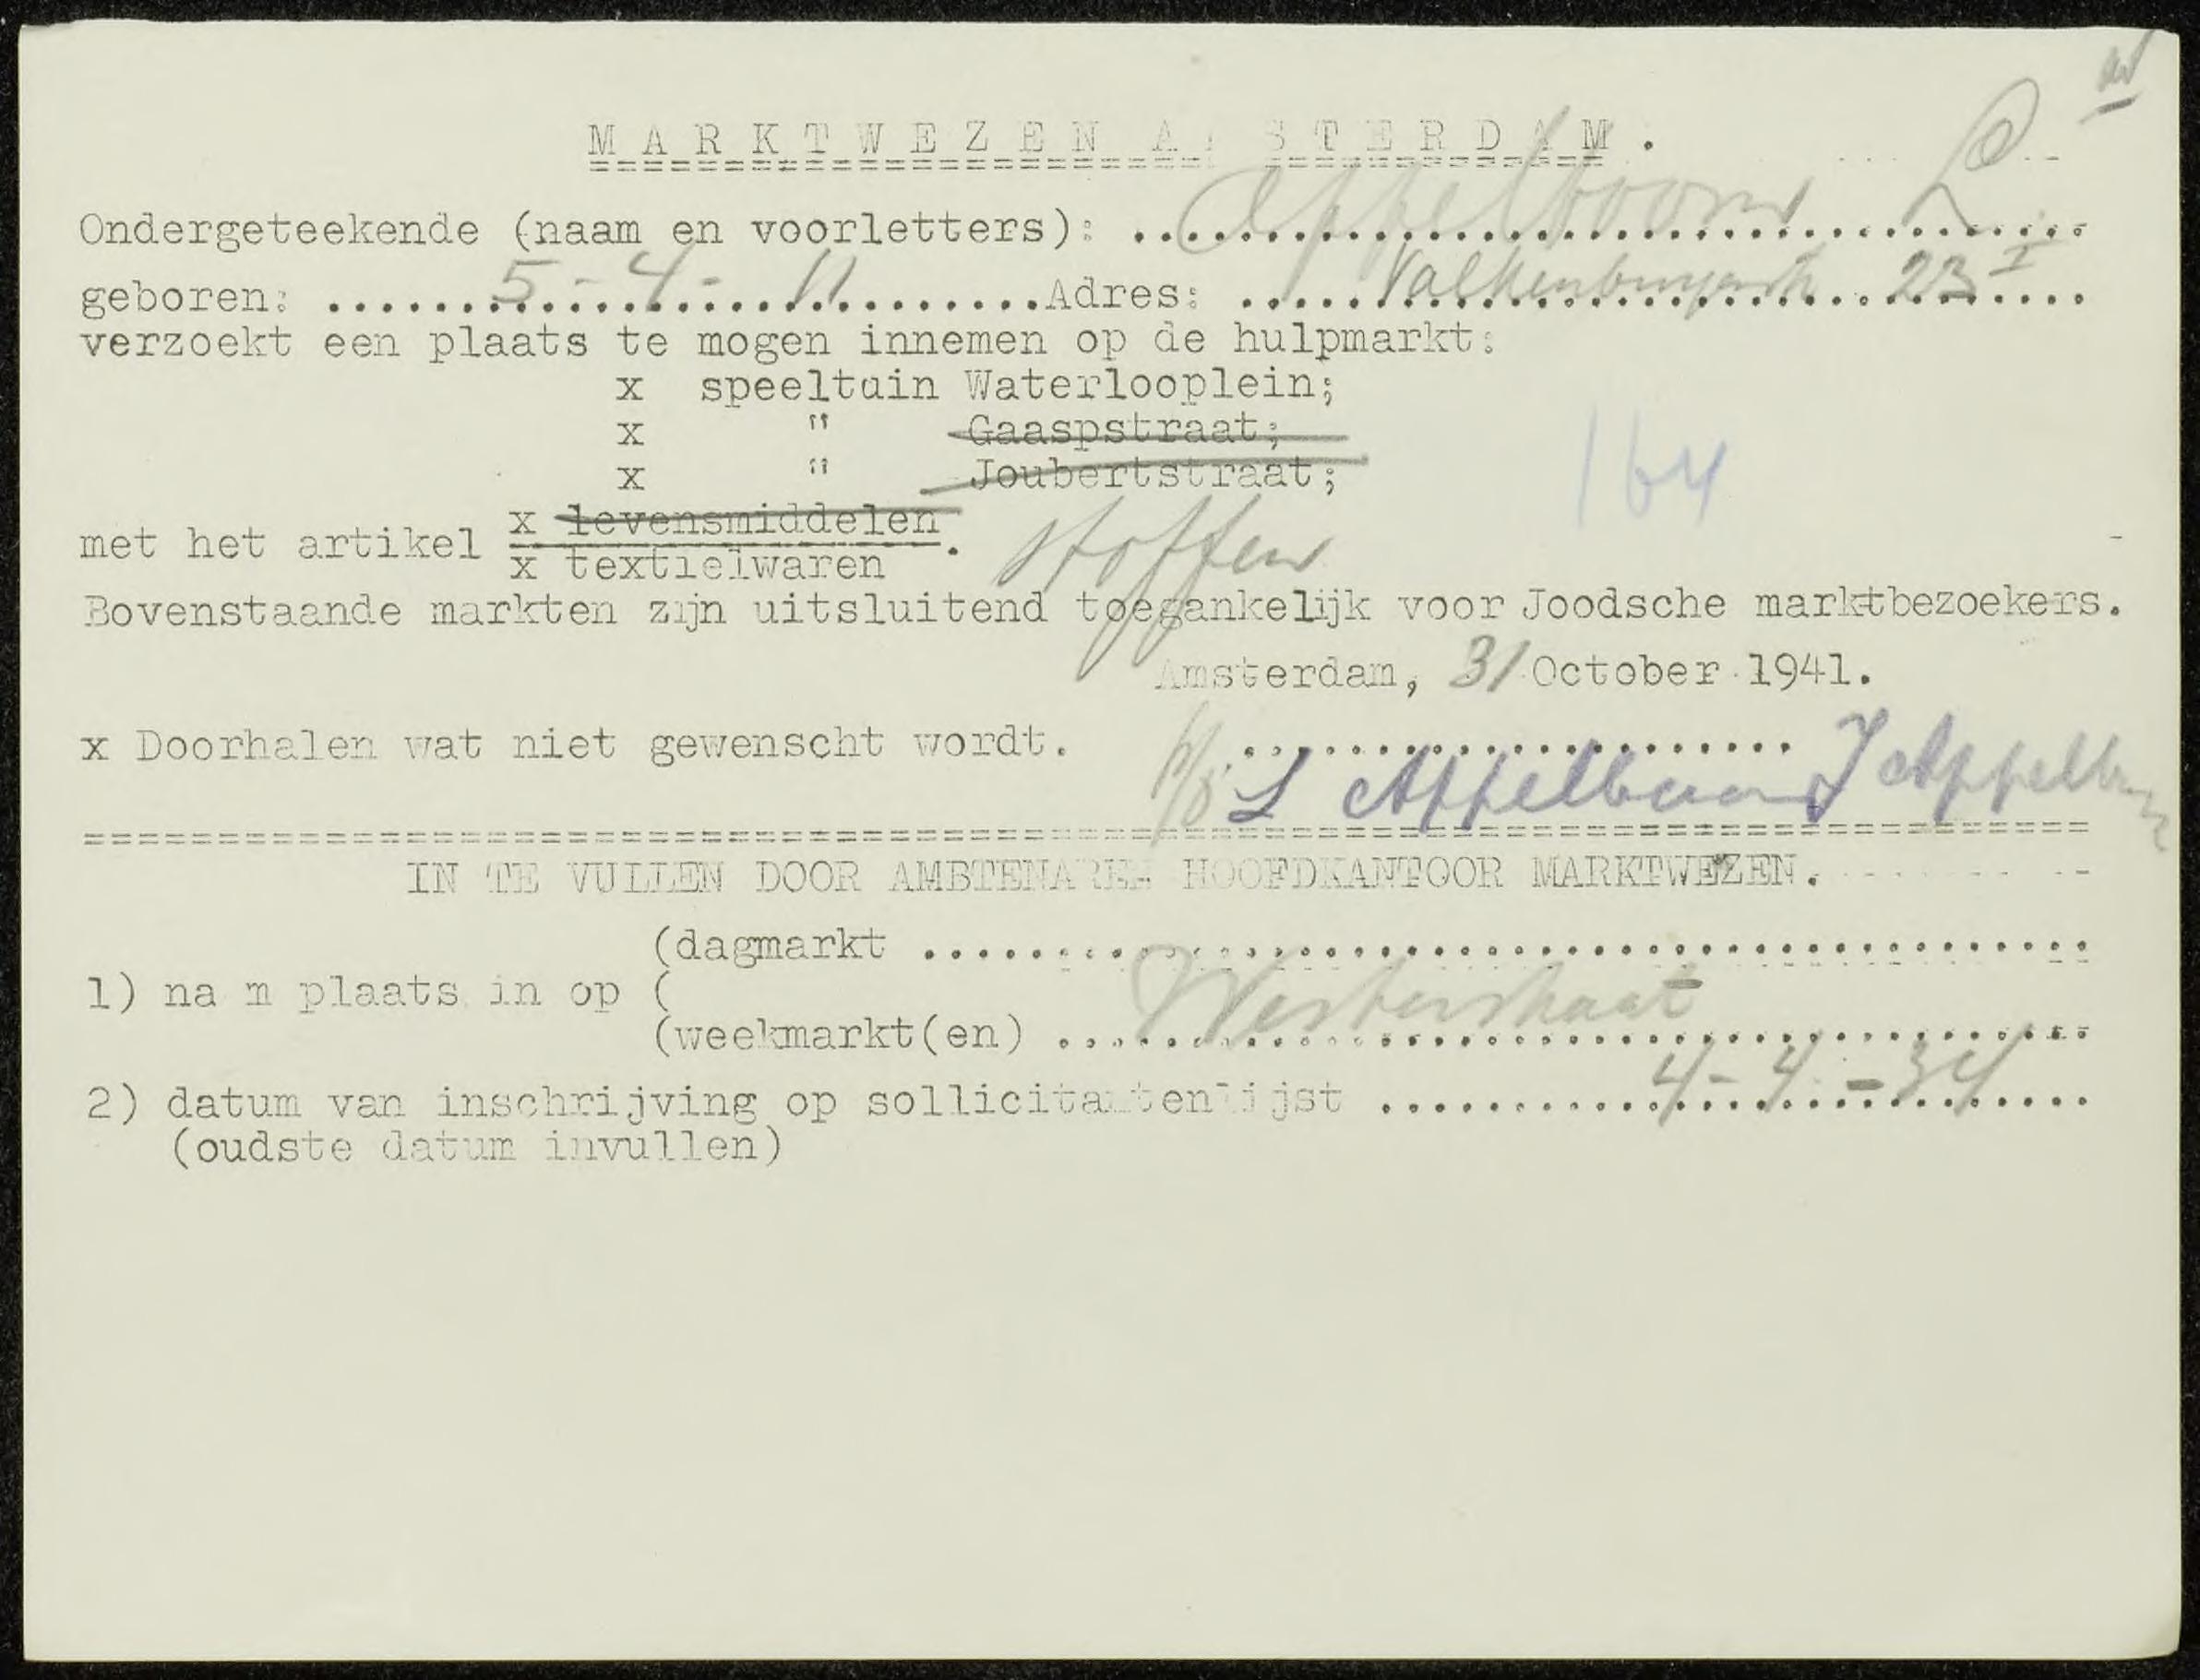 M A R K T W E Z E N A M S T E R D A M .
Ondergeteekende (naam en voorletters): Appelboom L
geboren: 5 - 4 - 11 Adres: Valkenburgerstr 23 I
verzoekt een plaats te mogen innemen op de hulpmarkt:
x speeltuin Waterlooplein;
x " Gaaspstraat;
x " Joubertstraat;
164
x levensmiddelen
met het artikel . stoffen
x textielwaren
Bovenstaande markten zijn uitsluitend toegankelijk voor Joodsche marktbezoekers.
Amsterdam, 31 October 1941.
x Doorhalen wat niet gewenscht wordt.
L Appelboom J Appelboom
IN TE VULLEN DOOR AMBTENAREN HOOFDKANTOOR MARKTWEZEN.
(dagmarkt
1) na m plaats in op (
(weekmarkt(en) Westerstraat
2) datum van inschrijving op sollicitantenlijst 4 - 4 - 34
(oudste datum invullen)